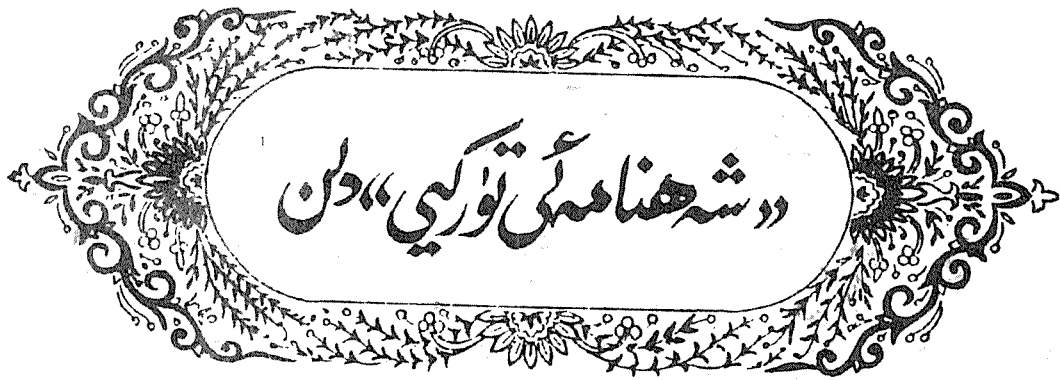 «شەھنامەئى تۈركىي»دىن